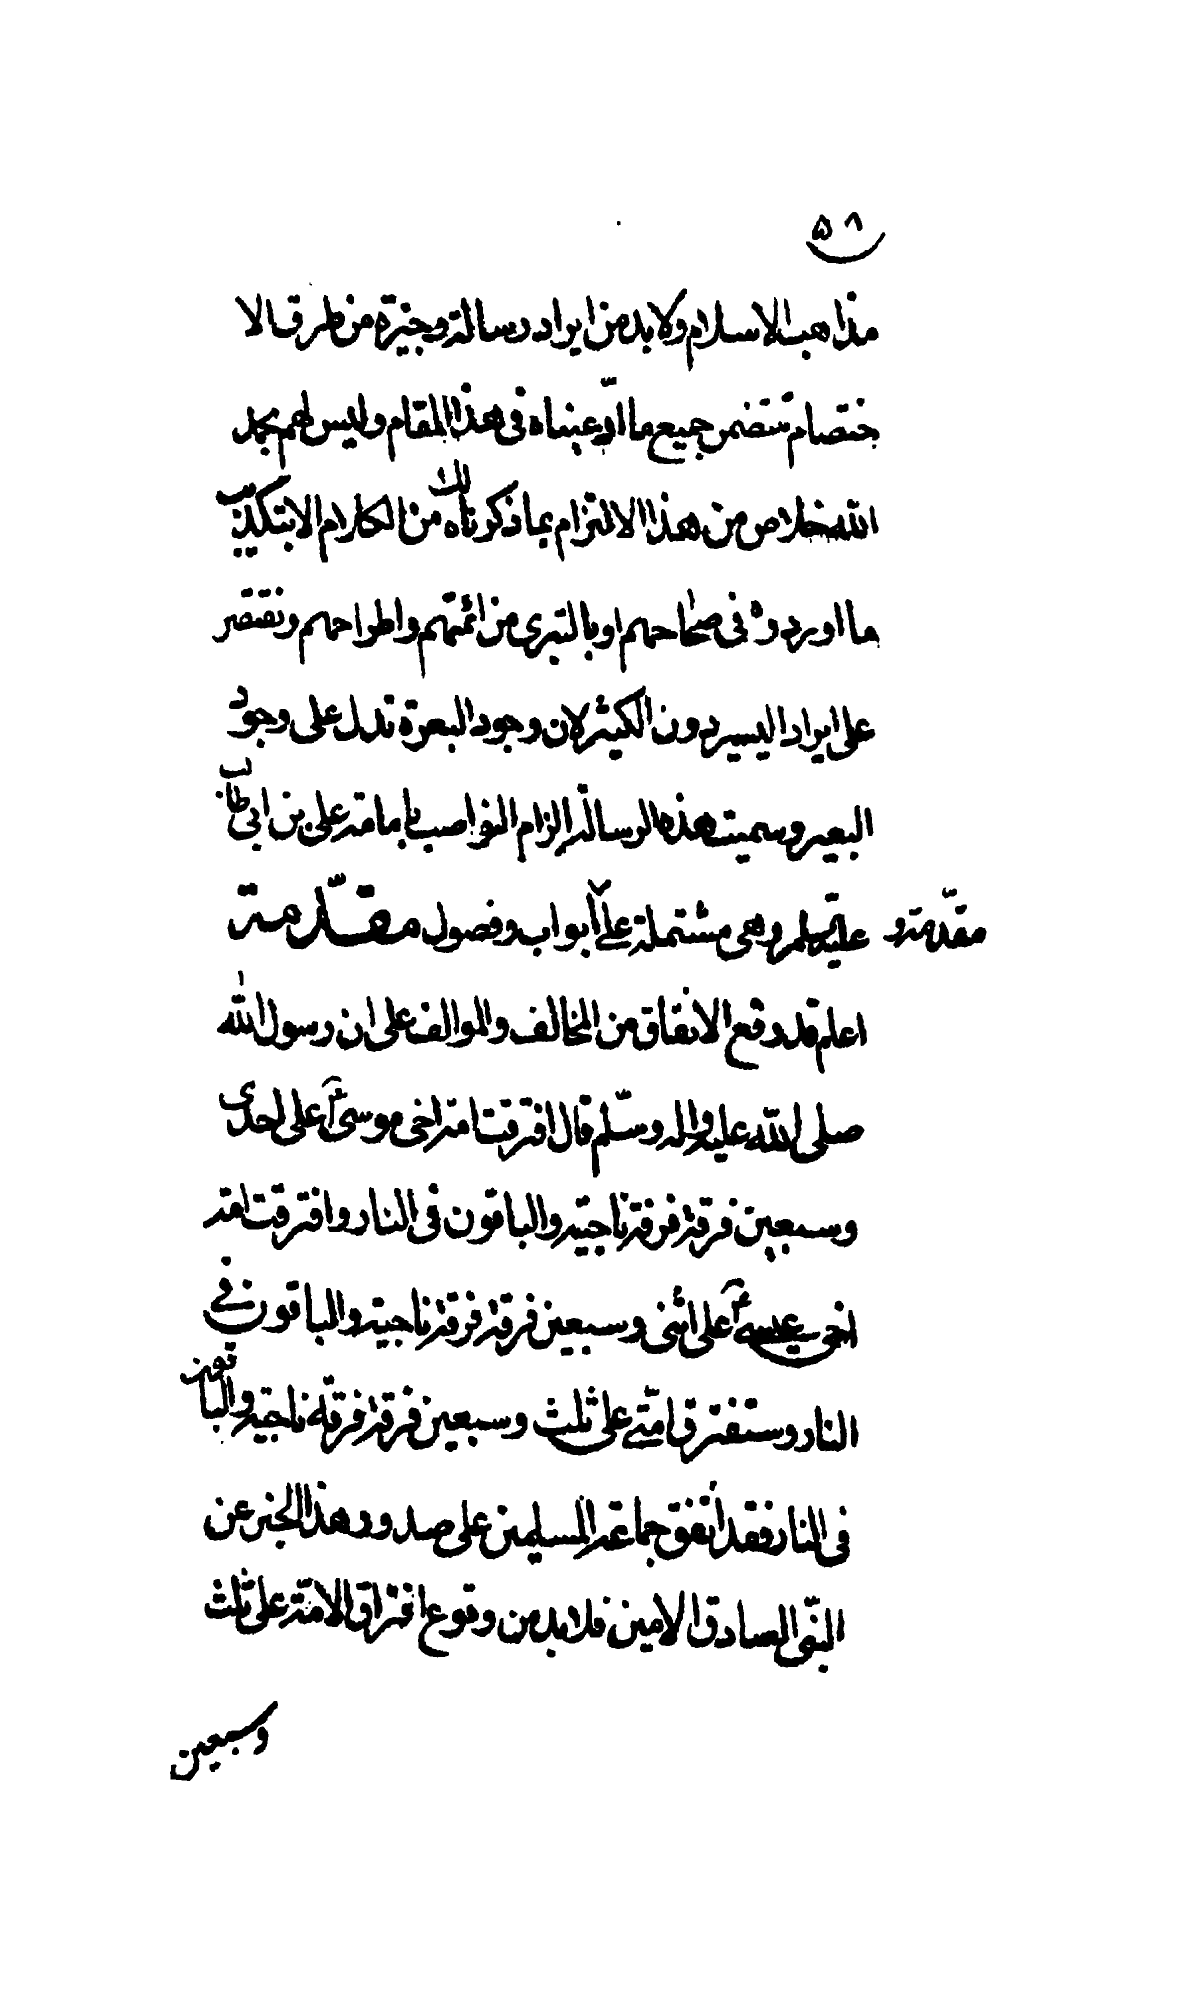 ٥٨
مذاهب الاسلام ولا بد من ايراد رسالة وجيزة من طرق الا
ختصام تتضمن جميع ما ادّعيناه فى هذا المقام وليس لهم بحمد
الله خلاص من هذا الالتزام بما ذكرناه لك من الكلام الا بتكذيب
ما اوردوه فى صحاحهم او بالتبرى من ائمتهم واطراحهم ونقتصر
على ايراد اليسير دون الكثير لان وجود البعرة تدل على وجود
البعير وسميت هذه الرسالة الزام النواصب بامامة على بن ابى طالب
عليه السلم وهى مشتملة على ابواب وفصول مقدّمة
مقدّمة و
اعلم قد وقع الاتفاق من المخالف والموالف على ان رسول الله
صلى الله عليه واله وسلّم قال افترقت امة اخى موسى ع على احدى
وسبعين فرقة فرقة ناجية والباقون فى النار وافترقت امة
اخى عيسى ع على اثنى وسبعين فرقة فرقة ناجية والباقون فى
النار وستفترق امّتى على ثلث وسبعين فرقة فرقة ناجية والباقون
فى النار فقد اتفق جماعة المسلمين على صدور هذا الخبر عن
النبّى الصادق الامين فلا بد من وقوع افتراق الامّة على ثلث
وسبعين